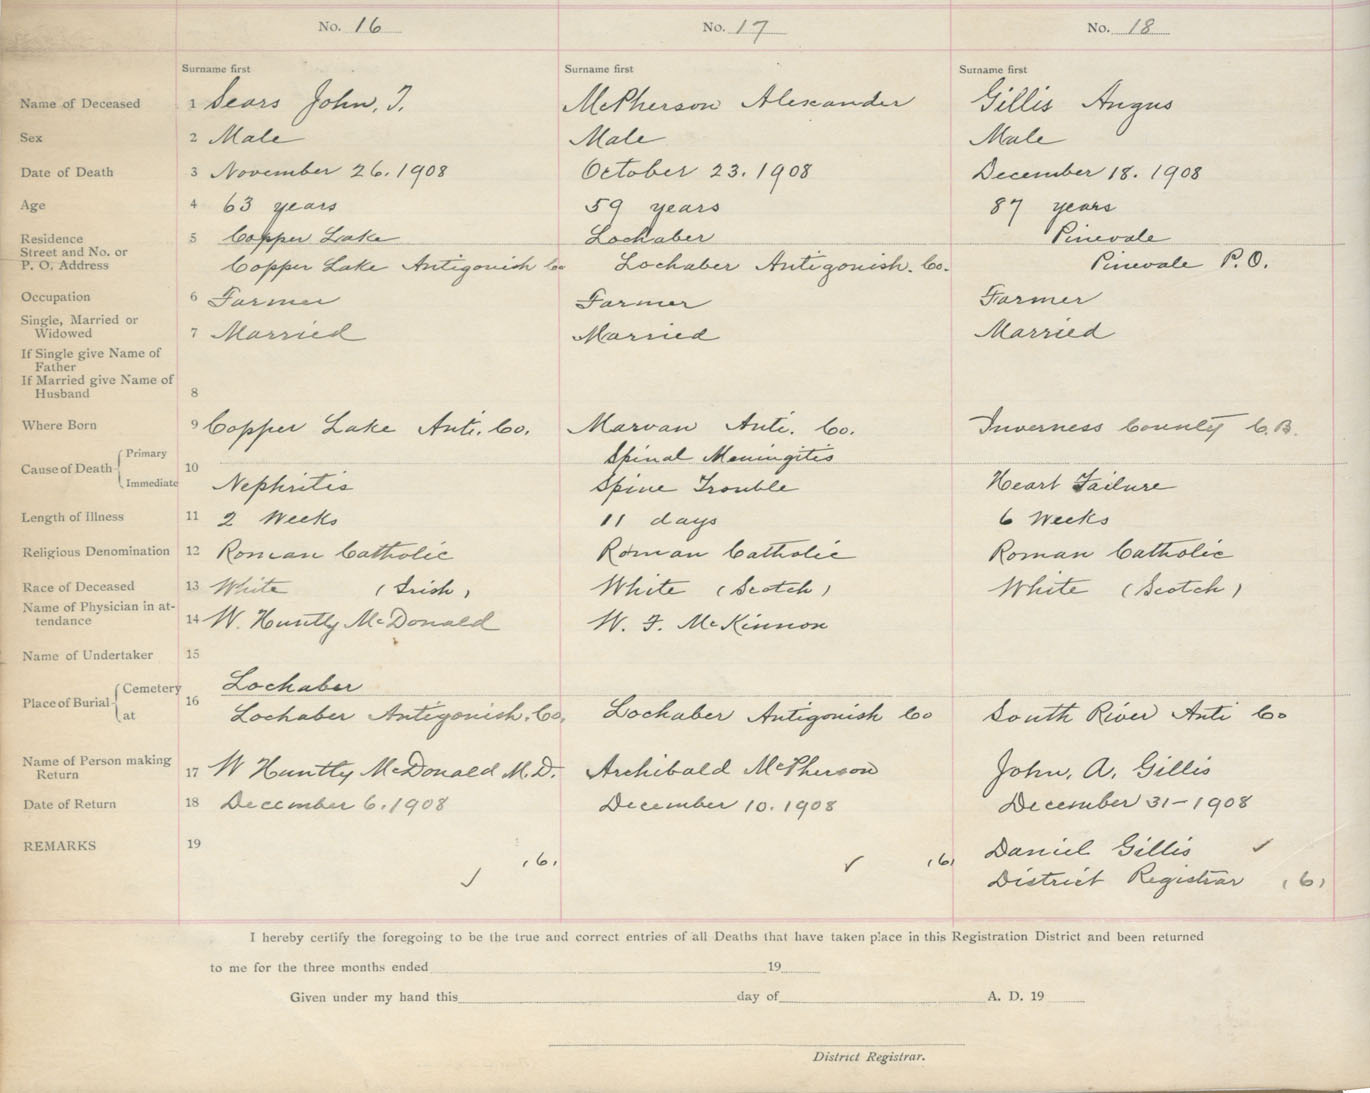 No. 16 No. 17 No. 18
Surname first Surname first Surname first
Name of Deceased 1 Sears John, T. McPherson Alexander Gillis Angus
Sex 2 Male Male Male
Date of Death 3 November 26. 1908 October 23. 1908 December 18. 1908
Age 4 63 years 59 years 87 years
Residence 5 Copper Lake Lochaber Pinevale
Street and No. or
P. O. Address Copper Lake Antigonish Co Lochaber Antigonish. Co. Pinevale P.O.
Occupation 6 Farmer Farmer Farmer
Single, Married or
Widowed 7 Married Married Married
If Single give Name of
Father
If Married give Name of
Husband 8
Where Born 9 Copper Lake Anti. Co. Marvan Anti. Co. Inverness County C.B.
Cause of Death Primary Spinal Meningitis
10
Immediate Nephritis Spine Trouble Heart Failure
Length of Illness 11 2 Weeks 11 days 6 Weeks
Religious Denomination 12 Roman Catholic Roman Catholic Roman Catholic
Race of Deceased 13 White (Irish) White (Scotch) White (Scotch)
Name of Physician in at-
tendance 14 W. Huntly McDonald W. F. McKinnon
Name of Undertaker 15
Place of Burial Cemetery Lochaber
16
at Lochaber Antigonish. Co. Lochaber Antigonish Co South River Anti Co
Name of Person making
Return 17 W Huntly McDonald M.D. Archibald McPherson John. A. Gillis
Date of Return 18 December 6. 1908 December 10. 1908 December 31-1908
REMARKS 19 Daniel Gillis ✓
✓ (6) ✓ (6) District Registrar (6)
I hereby certify the foregoing to be the true and correct entries of all Deaths that have taken place in this Registration District and been returned
to me for the three months ended 19
Given under my hand this day of A. D. 19
District Registrar.